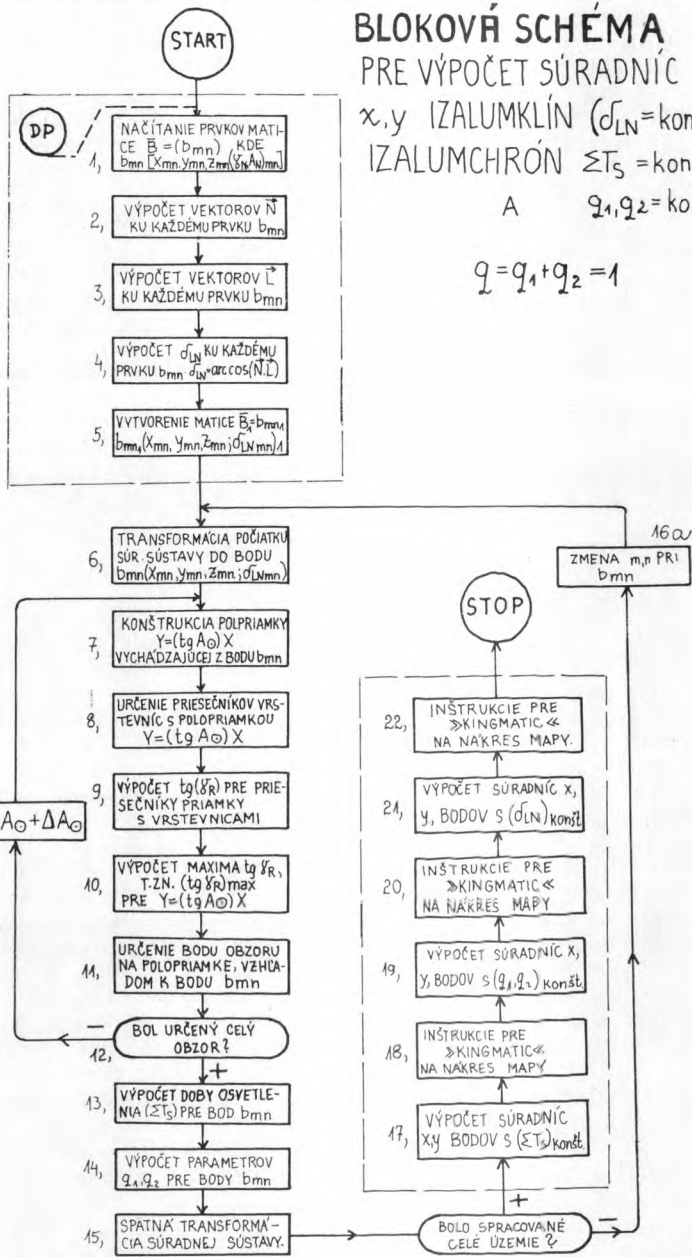 BLOKOVÁ SCHÉMA
PRE VÝPOČET SÚRADNÍC
x,y IZALUMKLÍN (δLN=kon
IZALUMCHRÓN ΣTS=kon
A q1,q2=ko
q=q1+q2=1
START
DP
1, NAČÍTANIE PRVKOV MATI-
CE B̄=(bmn) KDE
bmn[Xmn,ymn,Zmn(ɣN AN)mn]
2, VÝPOČET VEKTOROV N⃗
KU KAŽDÉMU PRVKU bmn
3, VÝPOČET VEKTOROV L⃗
KU KAŽDÉMU PRVKU bmn
4, VÝPOČET δLN KU KAŽDÉMU
PRVKU bmn δLN=arccos(N⃗.L⃗)
5, VYTVORENIE MATICE B̄1=bmn1
bmn1(Xmn,ymn,Zmn;δLNmn)1
6, TRANSFORMÁCIA POČIATKU
SÚR. SÚSTAVY DO BODU
bmn(Xmn,ymn,Zmn;δLNmn)
7, KONŠTRUKCIA POLPRIAMKY
Y=(tg A⊙)X
VYCHÁDZAJÚCEJ Z BODU bmn
8, URČENIE PRIESEČNÍKOV VRS-
TEVNÍC S POLOPRIAMKOU
Y=(tg A⊙)X
9, VÝPOČET tg(ɣR) PRE PRIE-
SEČNÍKY PRIAMKY
S VRSTEVNICAMI
A⊙+ΔA⊙
10, VÝPOČET MAXIMA tg ɣR,
T.ZN. (tg ɣR)max
PRE Y=(tg A⊙)X
11, URČENIE BODU OBZORU
NA POLOPRIAMKE, VZHĽA-
DOM K BODU bmn
12, BOL URČENÝ CELÝ
OBZOR?
−
+
13, VÝPOČET DOBY OSVETLE-
NIA (ΣTS) PRE BOD bmn
14, VÝPOČET PARAMETROV
q1,q2 PRE BODY bmn
15, SPATNÁ TRANSFORMÁ-
CIA SÚRADNEJ SÚSTAVY.
BOLO SPRACOVANÉ
CELÉ ÚZEMIE?
−
+
16a
ZMENA m,n PRI
bmn
STOP
22, INŠTRUKCIE PRE
»KINGMATIC«
NA NÁKRES MAPY.
21, VÝPOČET SÚRADNÍC X,
Y, BODOV S (δLN)konšt
20, INŠTRUKCIE PRE
»KINGMATIC«
NA NÁKRES MAPY
19, VÝPOČET SÚRADNÍC X,
Y, BODOV S (q1,q2)konšt.
18, INŠTRUKCIE PRE
»KINGMATIC«
NA NÁKRES MAPY
17, VÝPOČET SÚRADNÍC
x,y BODOV S (ΣTS)konšt.